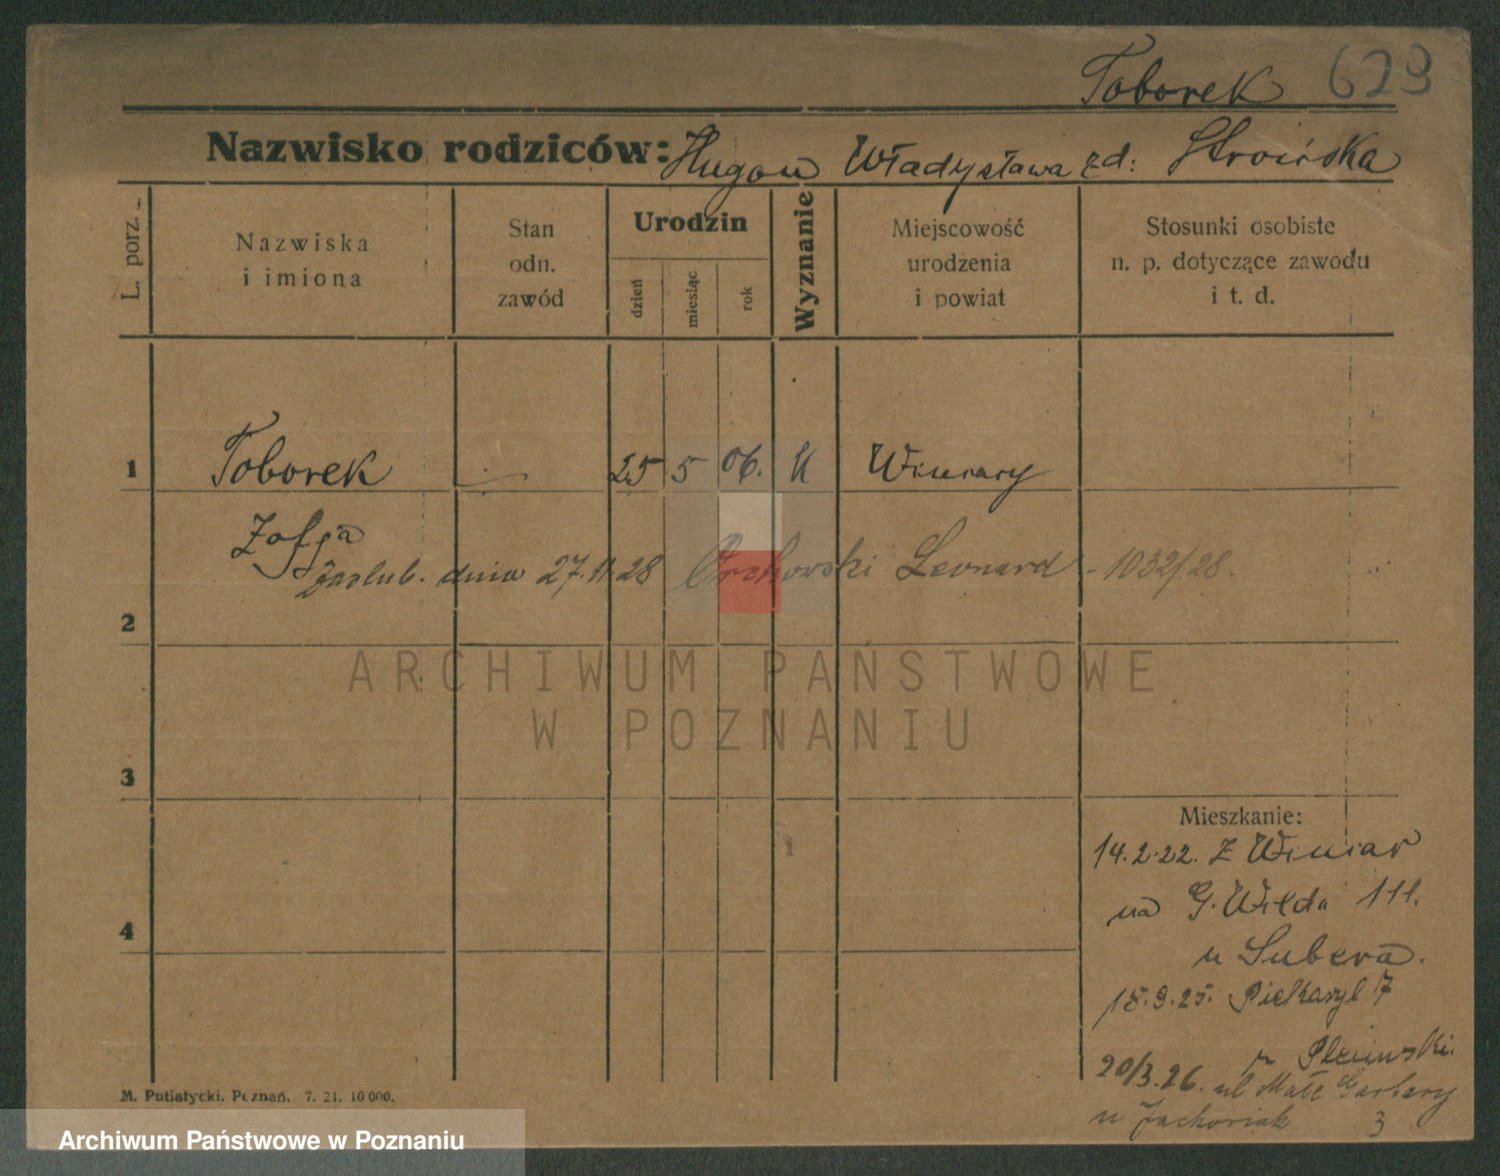 Toborek 623
Nazwisko rodziców: Hugon Władysława zd: Stroińska
L. porz.
Nazwiska
i imiona
Stan
odn.
zawód
Urodzin
dzień
miesiąc
rok
Wyznanie
Miejscowość
urodzenia
i powiat
Stosunki osobiste
n. p. dotyczące zawodu
i t. d.
1 Toborek 25 5 06. K Winiary
Zofja
zaślub. dnia 27.11.28 Orchowski Leonard - 1032/28.
2
ARCHIWUM PAŃSTWOWE
W POZNANIU
3
Mieszkanie:
14.2.22. Z Winiar
na G. Wilda 111.
4
u Subera.
18.9.25. 7
u
20/3.26. ul Małe Garbary
u 3
M. Putiatycki. Poznań. 7. 21. 10 000.
Archiwum Państwowe w Poznaniu